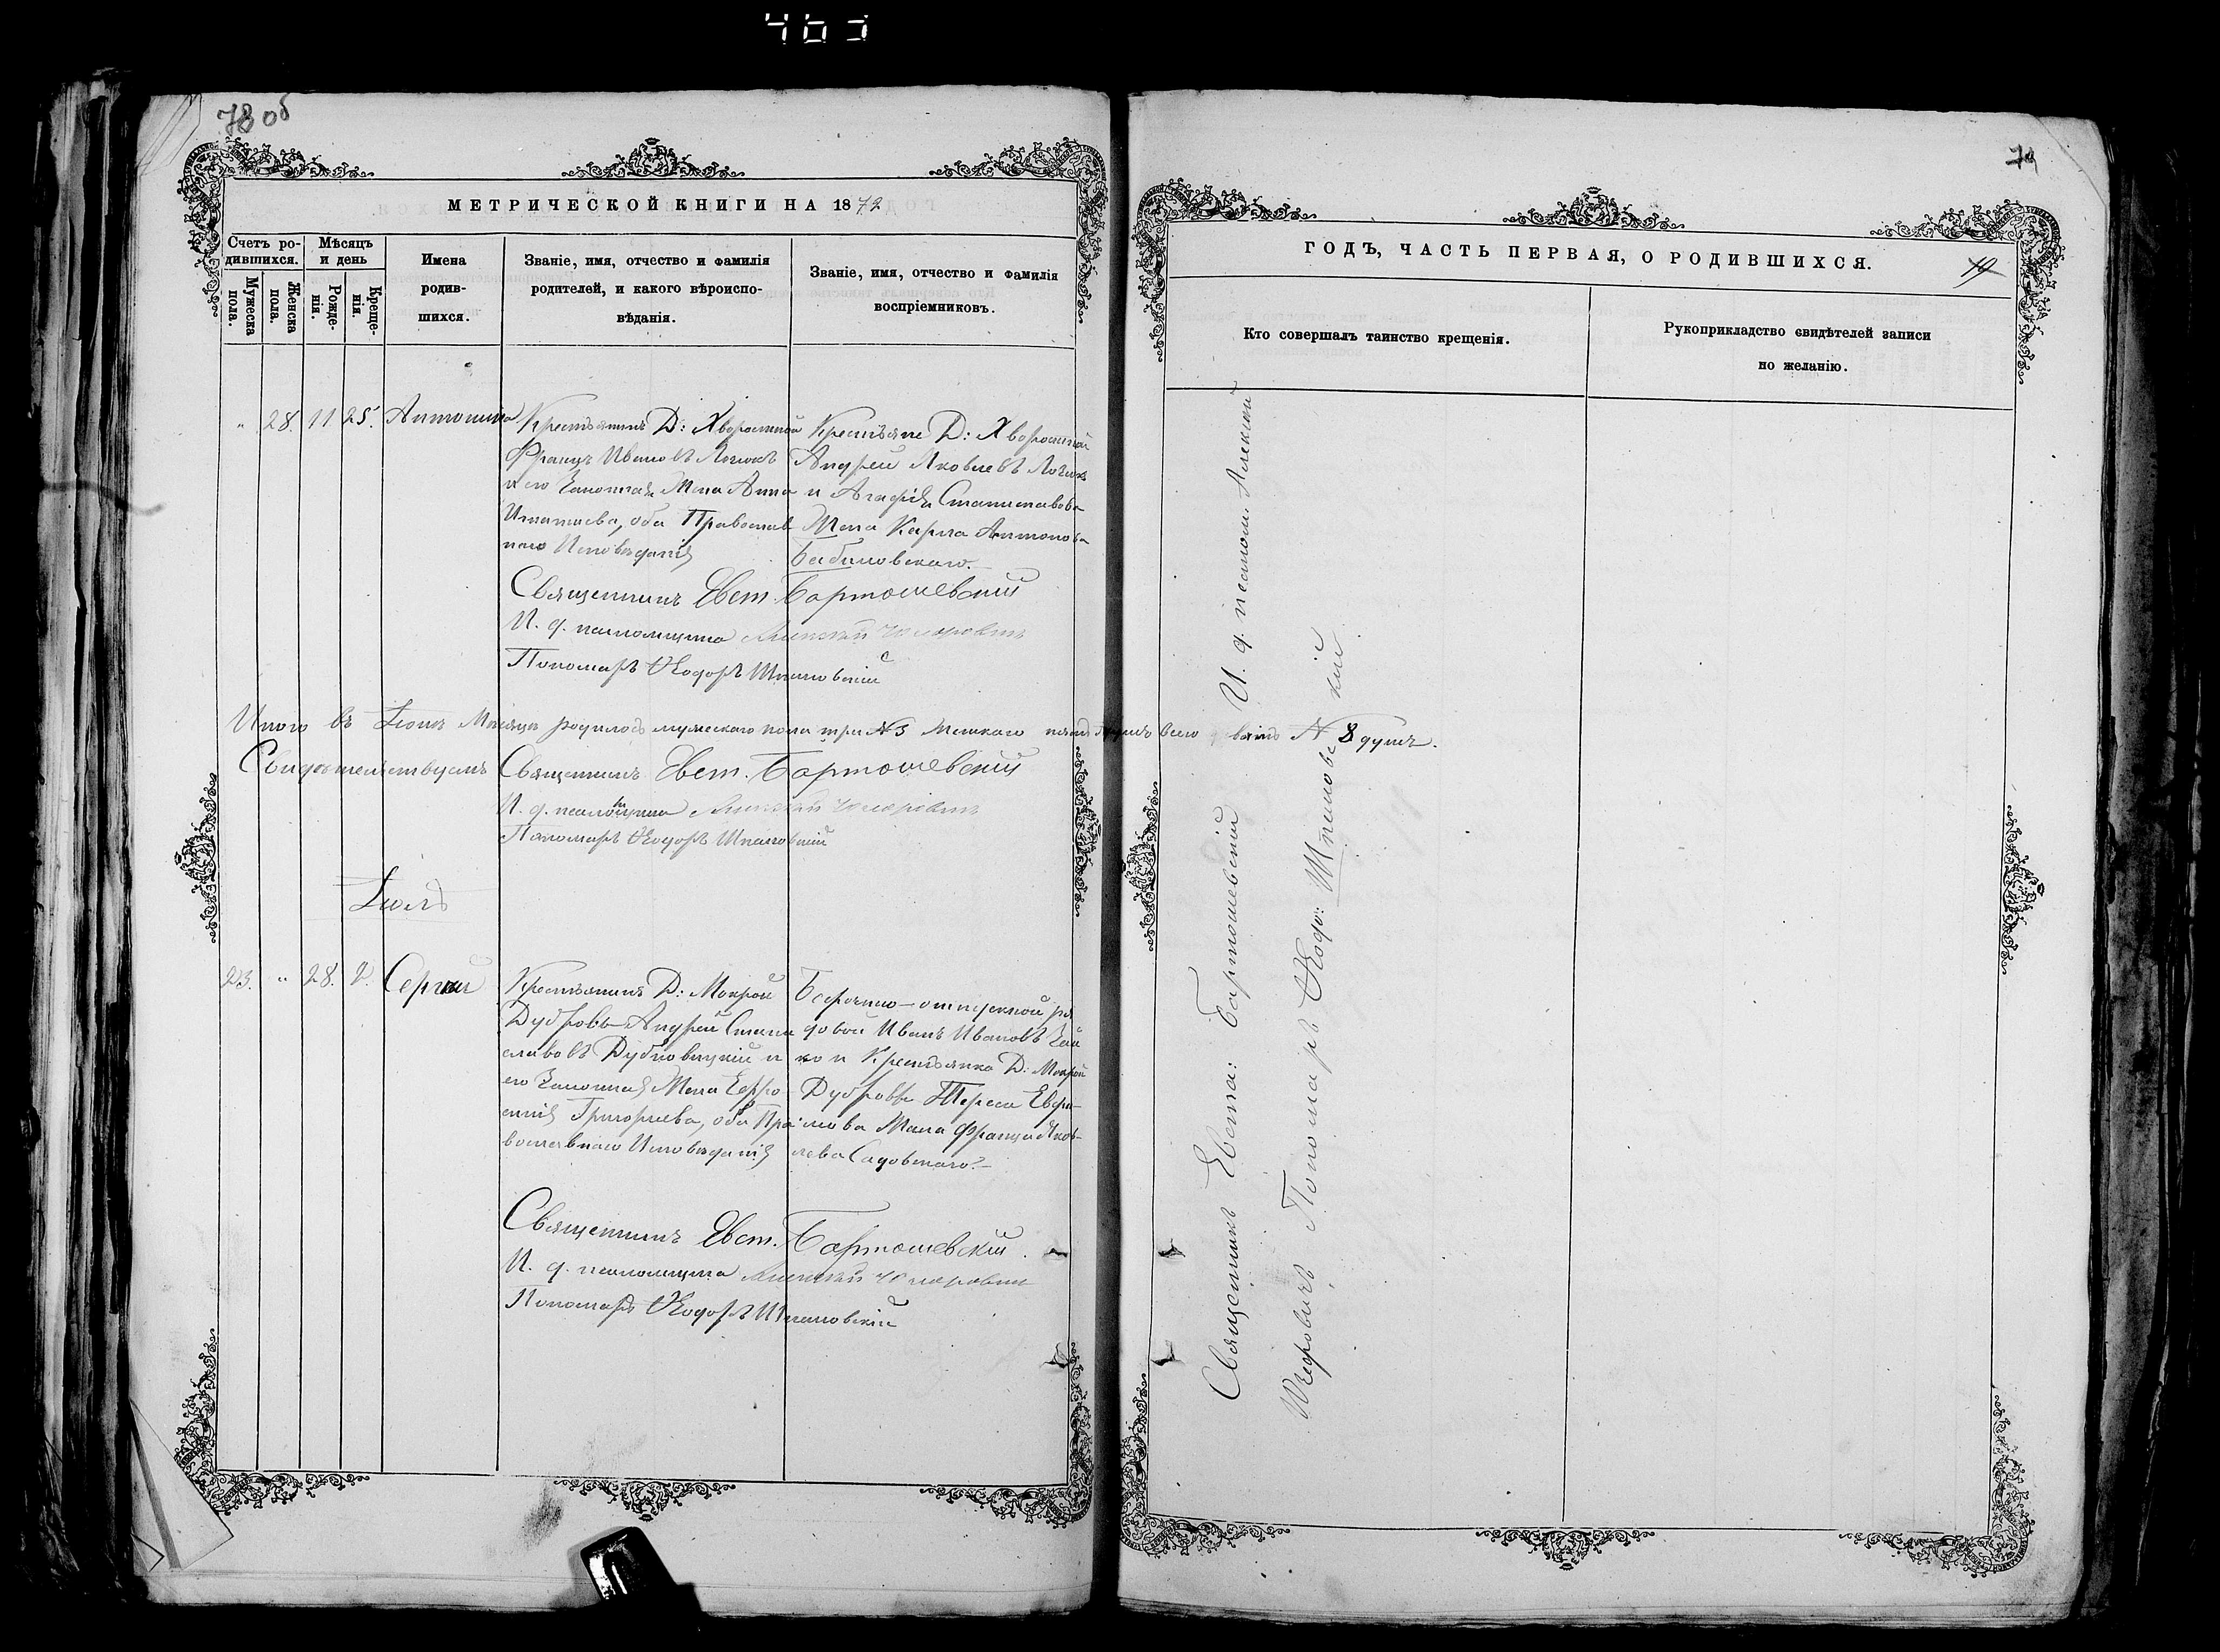 463
78 об
МЕТРИЧЕСКОЙ КНИГИ НА 1872
Счетъ родившихся.
Мѣсяцъ и день
Имена родившихся.
Званіе, имя, отчество и фамилія родителей, и какого вѣроисповѣданія.
Званіе, имя, отчество и фамилія воспріемниковъ.
Мужеска пола.
Женска пола.
Рожденія.
Крещенія.
" 28. 11 25. Антонина
Крестьянинъ Д: Хворостной
Францъ Ивановъ
и его Законная Жена Анна
Игнатьева, оба Православ
наго Исповѣданія
Крестьяне Д: Хворостной
Андрей Яковлевъ
и Агафія Станиславова
Жена Карла Антонова
Бабиновскаго.
Священникъ Евст. Бартошевскій
И. д. псаломщика
Пономарь Ѳеодоръ Шпилевскій
Итого въ Іюнѣ Мѣсяцѣ родилось мужескаго пола три №3 Женскаго пять всего №8 душъ.
Свидѣтельствуемъ Священникъ Евст. Бартошевскій
И. д. псаломщика
Пономарь Ѳеодоръ Шпилевскій
Іюль
23. " 28. 2. Сергій
Крестьянинъ Д: Мокрой
Дубровы Андрей Стани
славовъ Дубновицкій и
его Законная Жена Евфро
синія Григорьева, оба Пра
вославнаго Исповѣданія
Безсрочно-отпускной ря
довой Иванъ Ивановъ Зай
ко и Крестьянка Д: Мокрой
Дубровы Тереса
Жена Франца Яков-
лева Садовскаго.
Священникъ Евст. Бартошевскій
И. д. псаломщика
Пономарь Ѳеодоръ Шпилевскій
79
ГОДЪ, ЧАСТЬ ПЕРВАЯ, О РОДИВШИХСЯ.
19
Кто совершалъ таинство крещенія.
Рукоприкладство свидѣтелей записи по желанію.
Священникъ Евста: Бартошевскій И. д. псалом. Алексій
Пономарь Ѳеодо: Шпилевскій